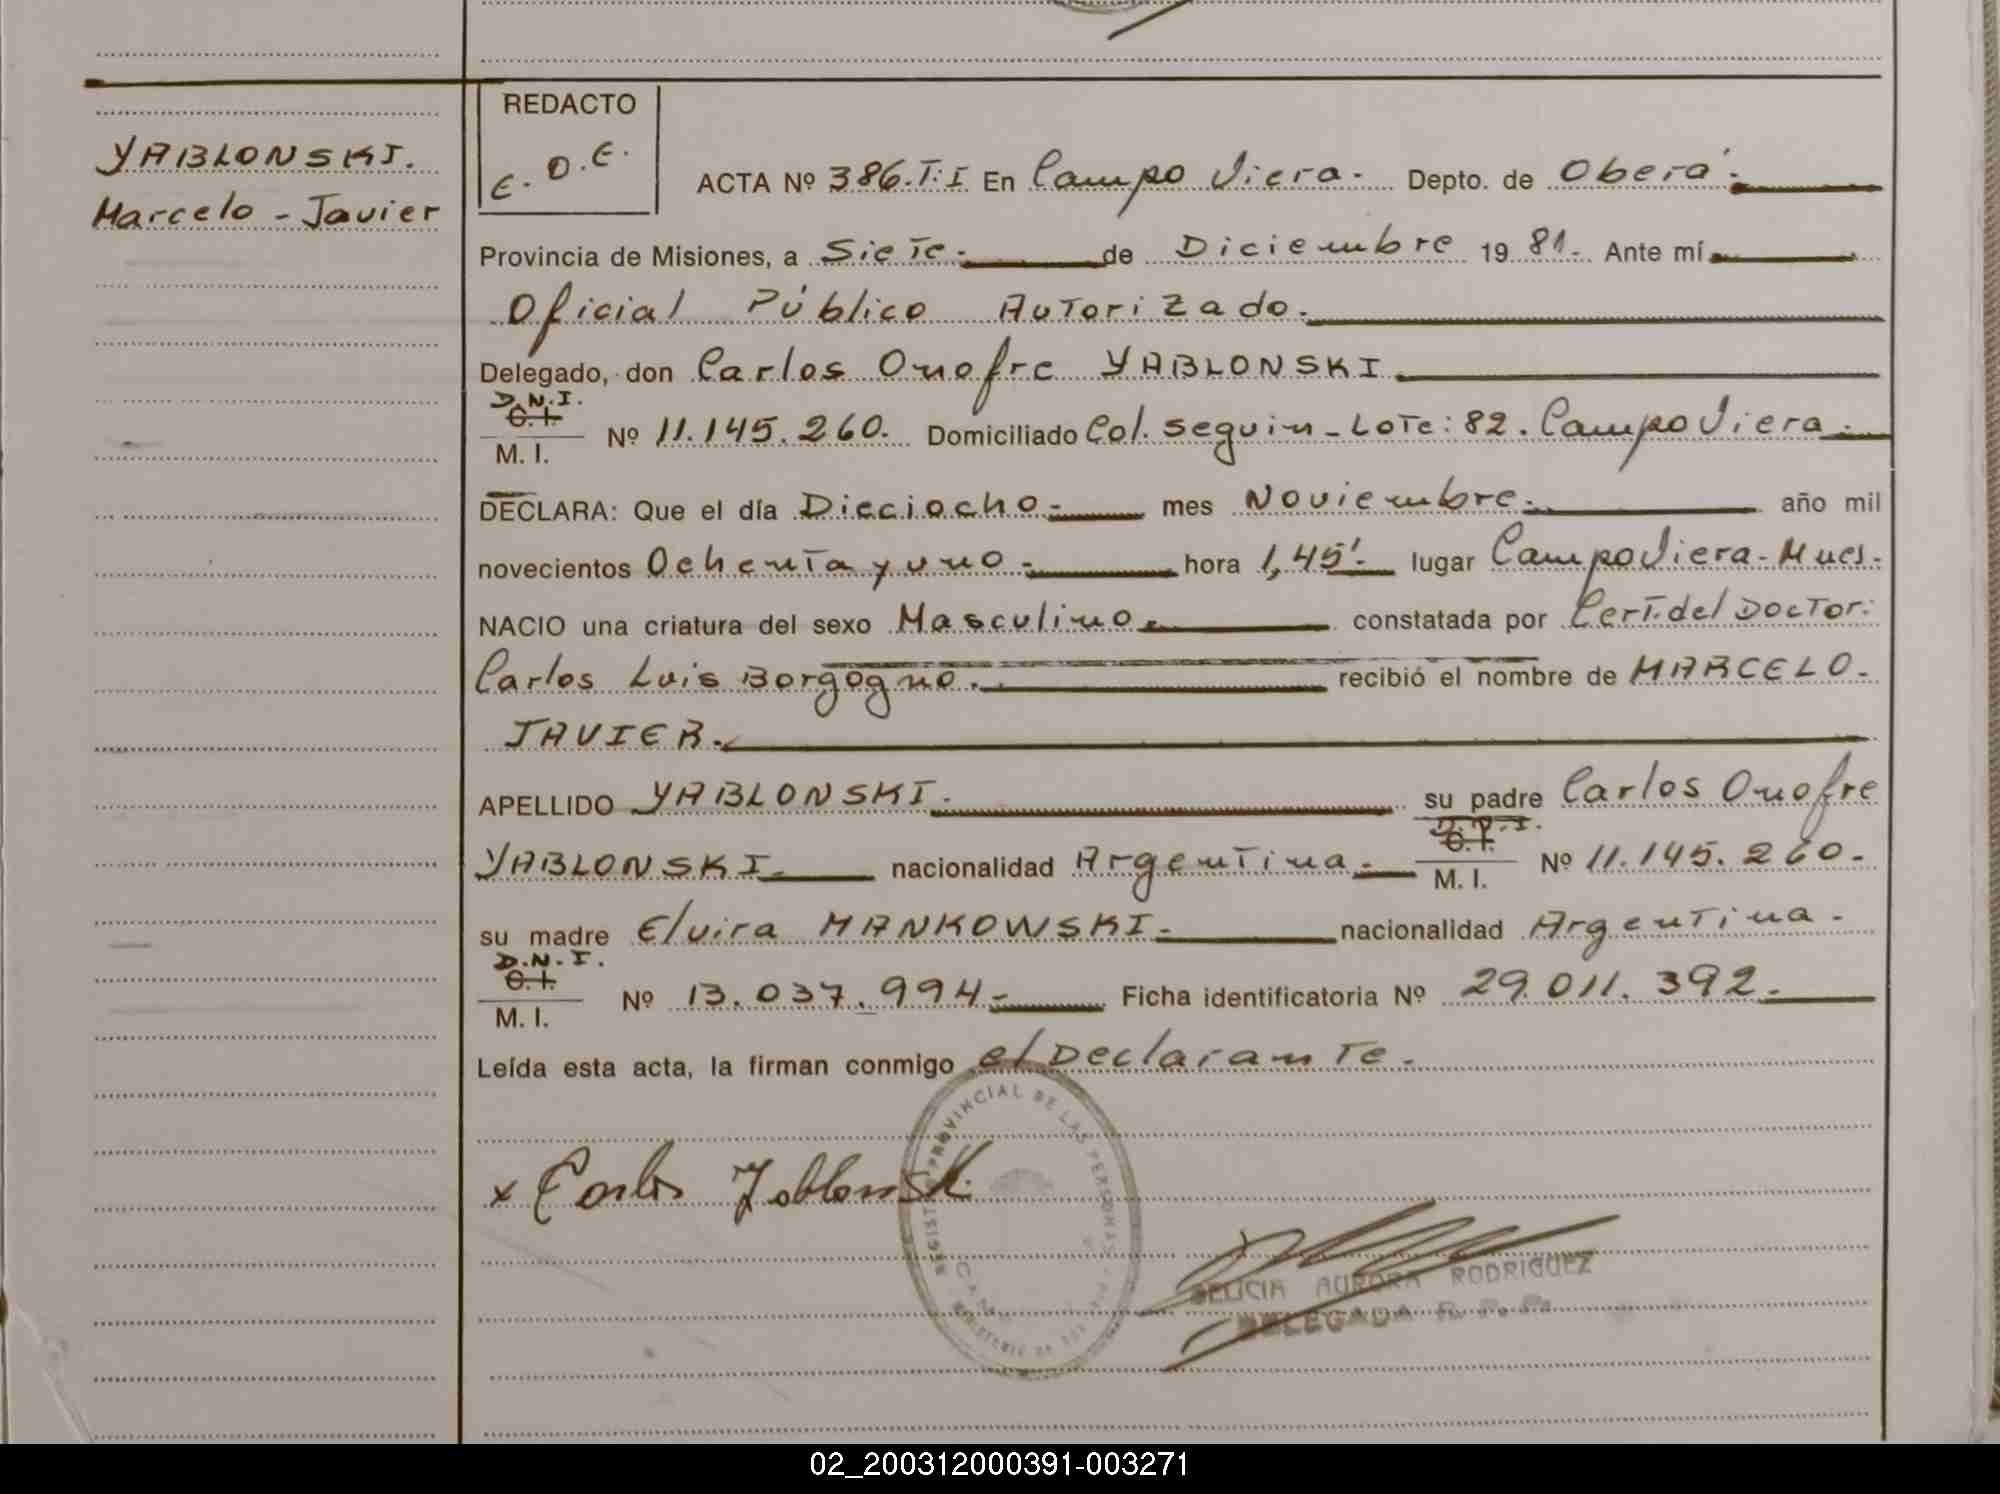 YABLONSKI.
Marcelo - Javier
REDACTO
E. O. E.
ACTA Nº 386.T.I En Campo Viera. Depto. de Oberá.
Provincia de Misiones, a Siete. de Diciembre 1981. Ante mí
Oficial Público Autorizado.
Delegado, don Carlos Onofre YABLONSKI
D.N.I.
C.I.
M. I.
Nº 11.145.260. Domiciliado Col. Seguin - Lote: 82. Campo Viera.
DECLARA: Que el día Dieciocho. mes Noviembre. año mil
novecientos Ochenta y uno. hora 1,45'. lugar Campo Viera - Mnes.
NACIO una criatura del sexo Masculino. constatada por Cert. del Doctor:
Carlos Luis Borgogno. recibió el nombre de MARCELO.
JAVIER.
APELLIDO YABLONSKI. su padre Carlos Onofre
D.N.I.
C.I.
M. I.
YABLONSKI. nacionalidad Argentina. Nº 11.145.260.
su madre Elvira MANKOWSKI. nacionalidad Argentina.
D.N.I.
C.I.
M. I.
Nº 13.037.994. Ficha identificatoria Nº 29.011.392.
Leída esta acta, la firman conmigo el Declarante.
REGISTRO PROVINCIAL DE LAS PERSONAS
x Carlos Yablonski
DELICIA AURORA RODRIGUEZ
DELEGADA R. P. P.
02_200312000391-003271